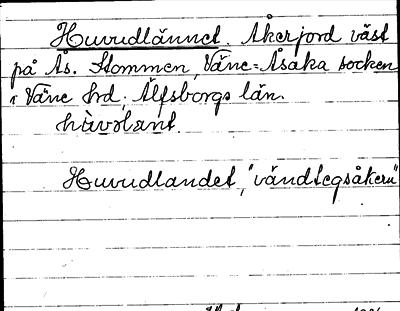 Huvudlännet. Åkerjord väst
på Ås. Stommen, Väne-Åsaka socken
i Väne hrd, Älfsborgs län.
hùvᴅlant.
Huvudlandet, "vändtegsåkern"